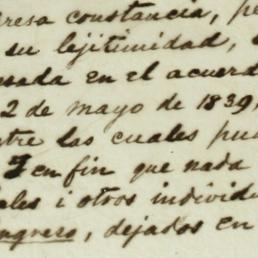 resa constancia, pe
su lejitimidad,
sada en el acuerd
2 de mayo de 1839,
tre las cuales pu
I en fin que nada
ales i otros individ
ngrero, dejados en